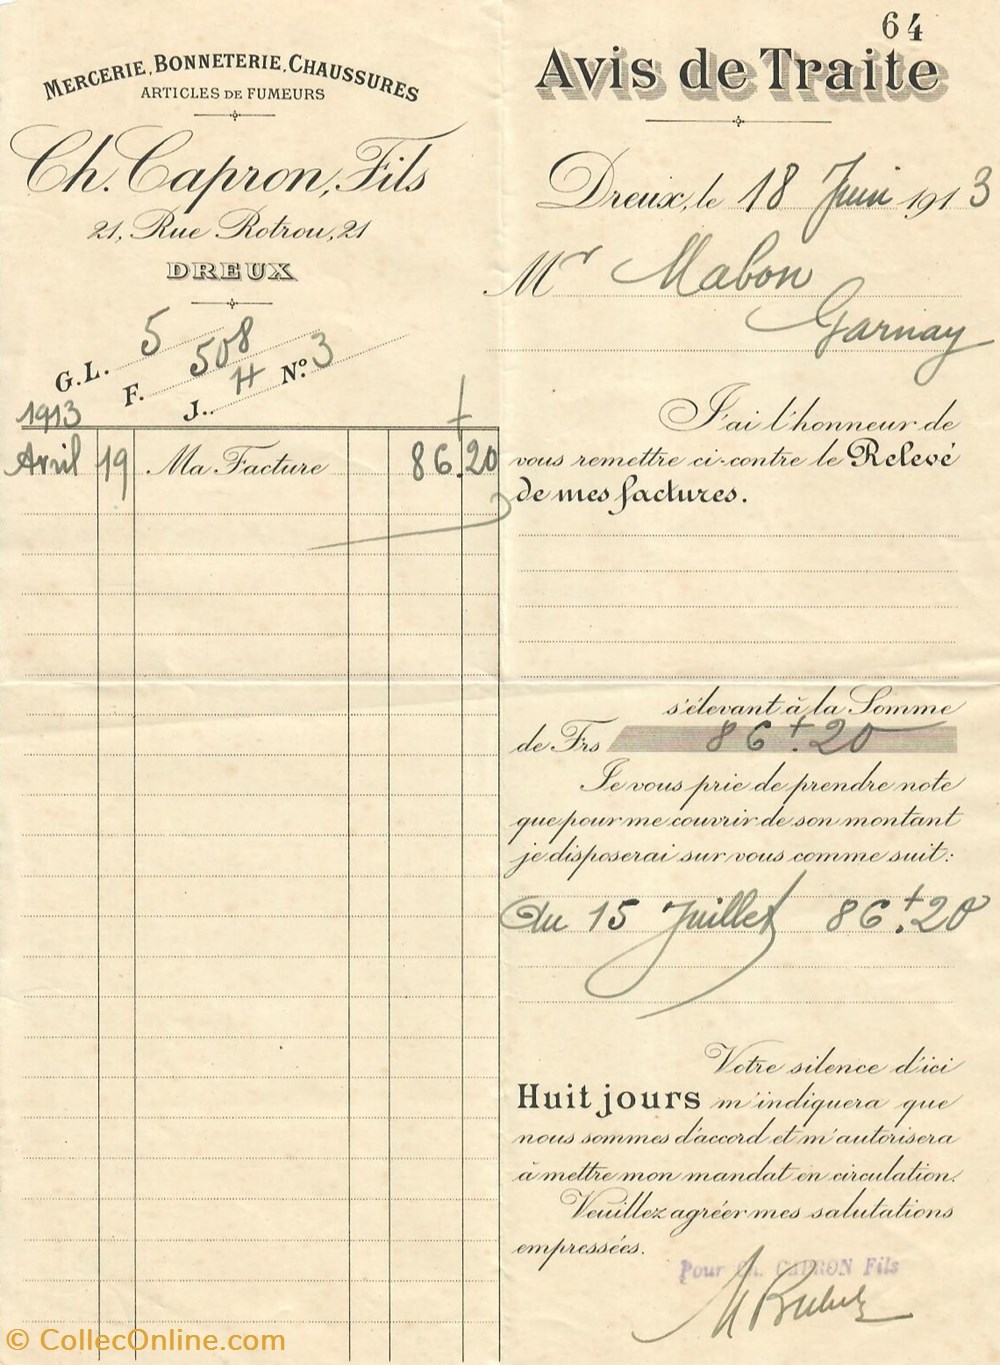 MERCERIE, BONNETERIE, CHAUSSURES
ARTICLES DE FUMEURS
Ch. Capron, Fils
21, Rue Rotrou, 21
DREUX
G.L. 5
F. 508
J.. H N° 3
1913
Avril 19 Ma Facture 86.20
64
Avis de Traite
Dreux, le 18 Juin 1913
Mr Mabon
Garnay
J'ai l'honneur de
vous remettre ci-contre le Relevé
de mes factures.
s'élevant à la Somme
de Frs 86.20
Je vous prie de prendre note
que pour me couvrir de son montant
je disposerai sur vous comme suit:
Au 15 Juillet 86.20
Votre silence d'ici
Huit jours m'indiquera que
nous sommes d'accord et m'autorisera
à mettre mon mandat en circulation.
Veuillez agréer mes salutations
empressées.
Pour Ch. CAPRON Fils
© CollecOnline.com